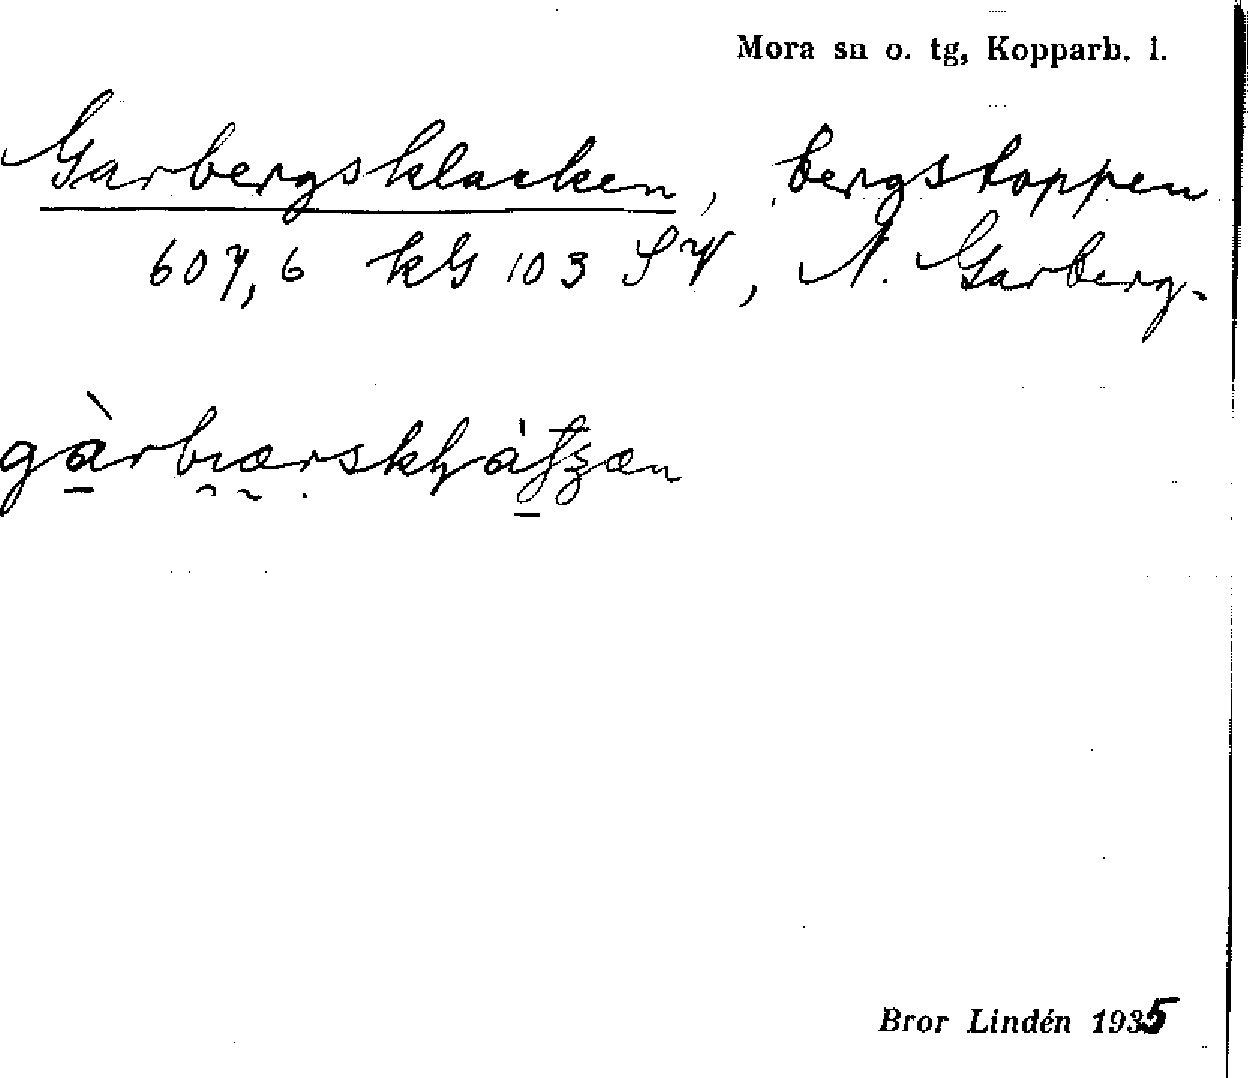 Mora sn o. tg, Kopparb. l.
Garbergsklacken, bergstoppen
607,6 kG 103 SV, N. Garberg.
Bror Lindén 1935